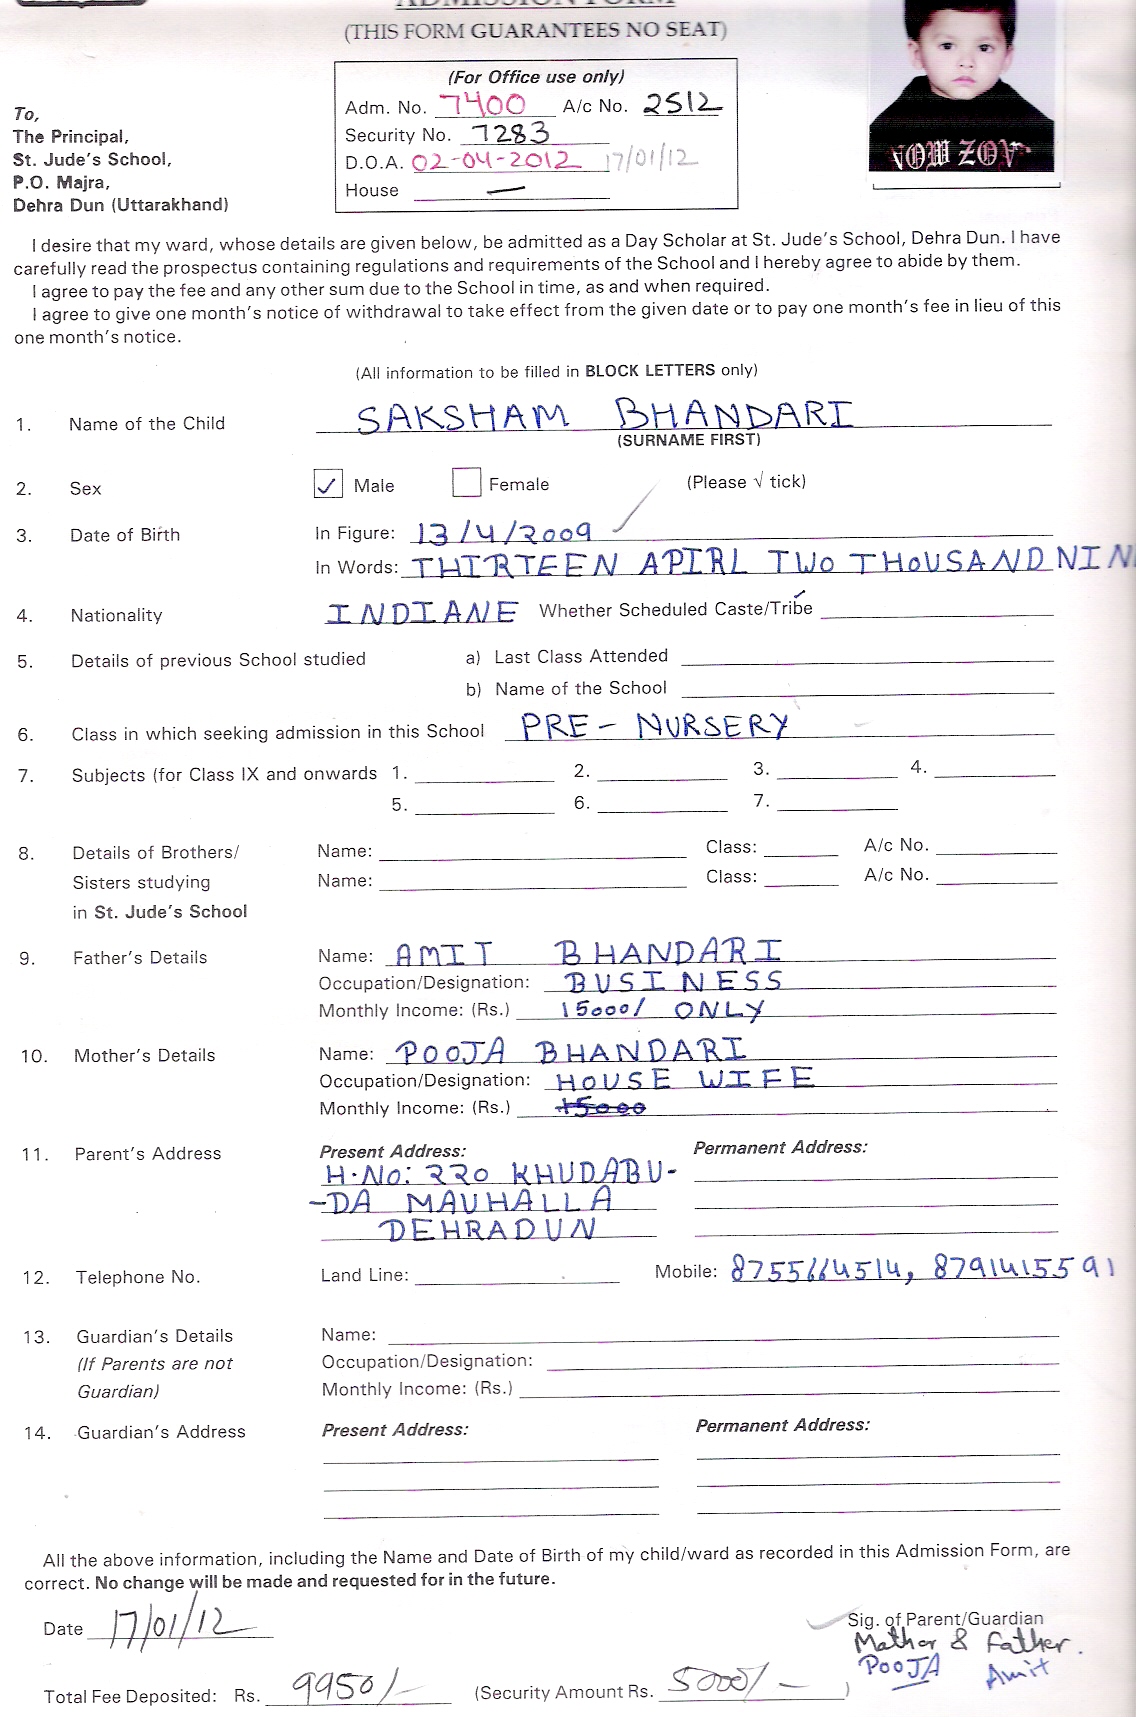 ADMISSION FORM
(THIS FORM GUARANTEES NO SEAT)
(For Office use only)
Adm. No. 7400 A/c No. 2512
Security No. 7283
D.O.A. 02-04-2012 17/01/12
House —
To,
The Principal,
St. Jude's School,
P.O. Majra,
Dehra Dun (Uttarakhand)
I desire that my ward, whose details are given below, be admitted as a Day Scholar at St. Jude's School, Dehra Dun. I have
carefully read the prospectus containing regulations and requirements of the School and I hereby agree to abide by them.
I agree to pay the fee and any other sum due to the School in time, as and when required.
I agree to give one month's notice of withdrawal to take effect from the given date or to pay one month's fee in lieu of this
one month's notice.
(All information to be filled in BLOCK LETTERS only)
1. Name of the Child SAKSHAM BHANDARI
(SURNAME FIRST)
2. Sex ✓ Male Female (Please √ tick)
3. Date of Birth In Figure: 13/4/2009
In Words: THIRTEEN APIRL TWO THOUSAND NIN
4. Nationality INDIANE Whether Scheduled Caste/Tribe
5. Details of previous School studied a) Last Class Attended
b) Name of the School
6. Class in which seeking admission in this School PRE - NURSERY
7. Subjects (for Class IX and onwards 1. 2. 3. 4.
5. 6. 7.
8. Details of Brothers/ Name: Class: A/c No.
Sisters studying Name: Class: A/c No.
in St. Jude's School
9. Father's Details Name: AMIT BHANDARI
Occupation/Designation: BUSINESS
Monthly Income: (Rs.) 15000/ ONLY
10. Mother's Details Name: POOJA BHANDARI
Occupation/Designation: HOUSE WIFE
Monthly Income: (Rs.) 15000
11. Parent's Address Present Address: Permanent Address:
H.No: 220 KHUDABU-
-DA MAUHALLA
DEHRADUN
12. Telephone No. Land Line: Mobile: 8755664514, 8791415591
13. Guardian's Details Name:
(If Parents are not Occupation/Designation:
Guardian) Monthly Income: (Rs.)
14. Guardian's Address Present Address: Permanent Address:
All the above information, including the Name and Date of Birth of my child/ward as recorded in this Admission Form, are
correct. No change will be made and requested for in the future.
Date 17/01/12
Sig. of Parent/Guardian
Mathar & Father.
POOJA Amit
Total Fee Deposited: Rs. 9950/- (Security Amount Rs. 5000/- )